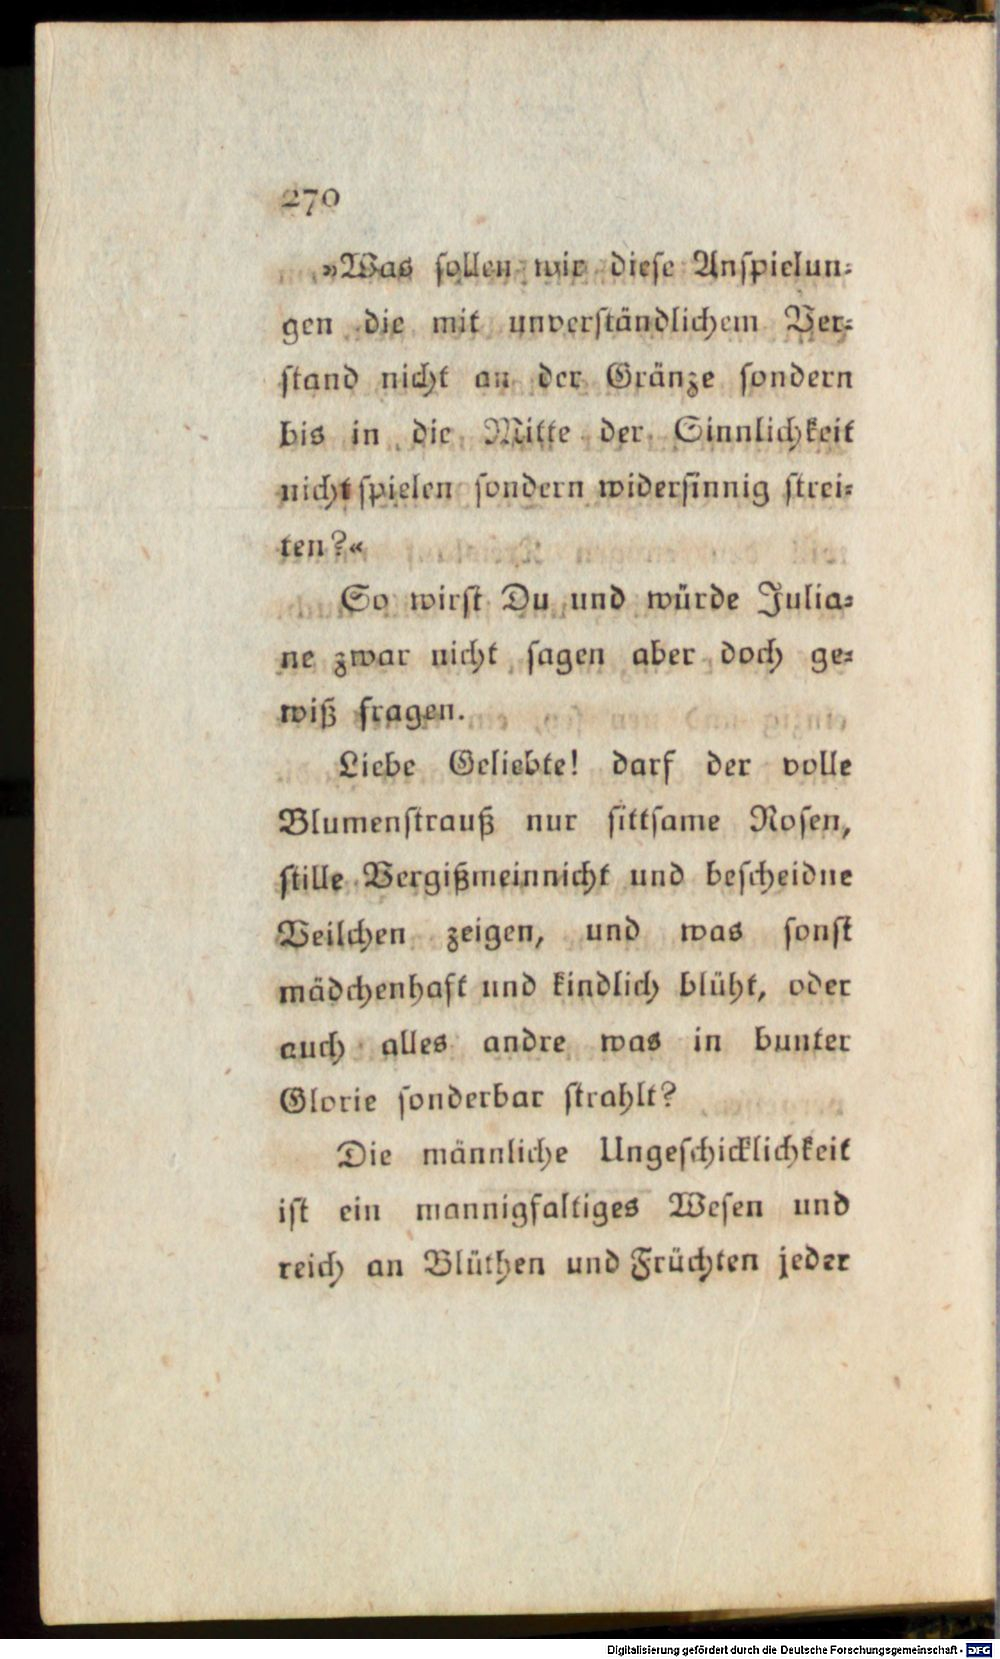 270
»Was sollen mir diese Anspielun-
gen die mit unverständlichem Ver-
stand nicht an der Gränze sondern
bis in die Mitte der Sinnlichkeit
nicht spielen sondern widersinnig strei-
ten?«
So wirst Du und würde Julia-
ne zwar nicht sagen aber doch ge-
wiß fragen.
Liebe Geliebte! darf der volle
Blumenstrauß nur sittsame Rosen,
stille Vergißmeinnicht und bescheidne
Veilchen zeigen, und was sonst
mädchenhaft und kindlich blüht, oder
auch alles andre was in bunter
Glorie sonderbar strahlt?
Die männliche Ungeschicklichkeit
ist ein mannigfaltiges Wesen und
reich an Blüthen und Früchten jeder
Digitalisierung gefördert durch die Deutsche Forschungsgemeinschaft - DFG